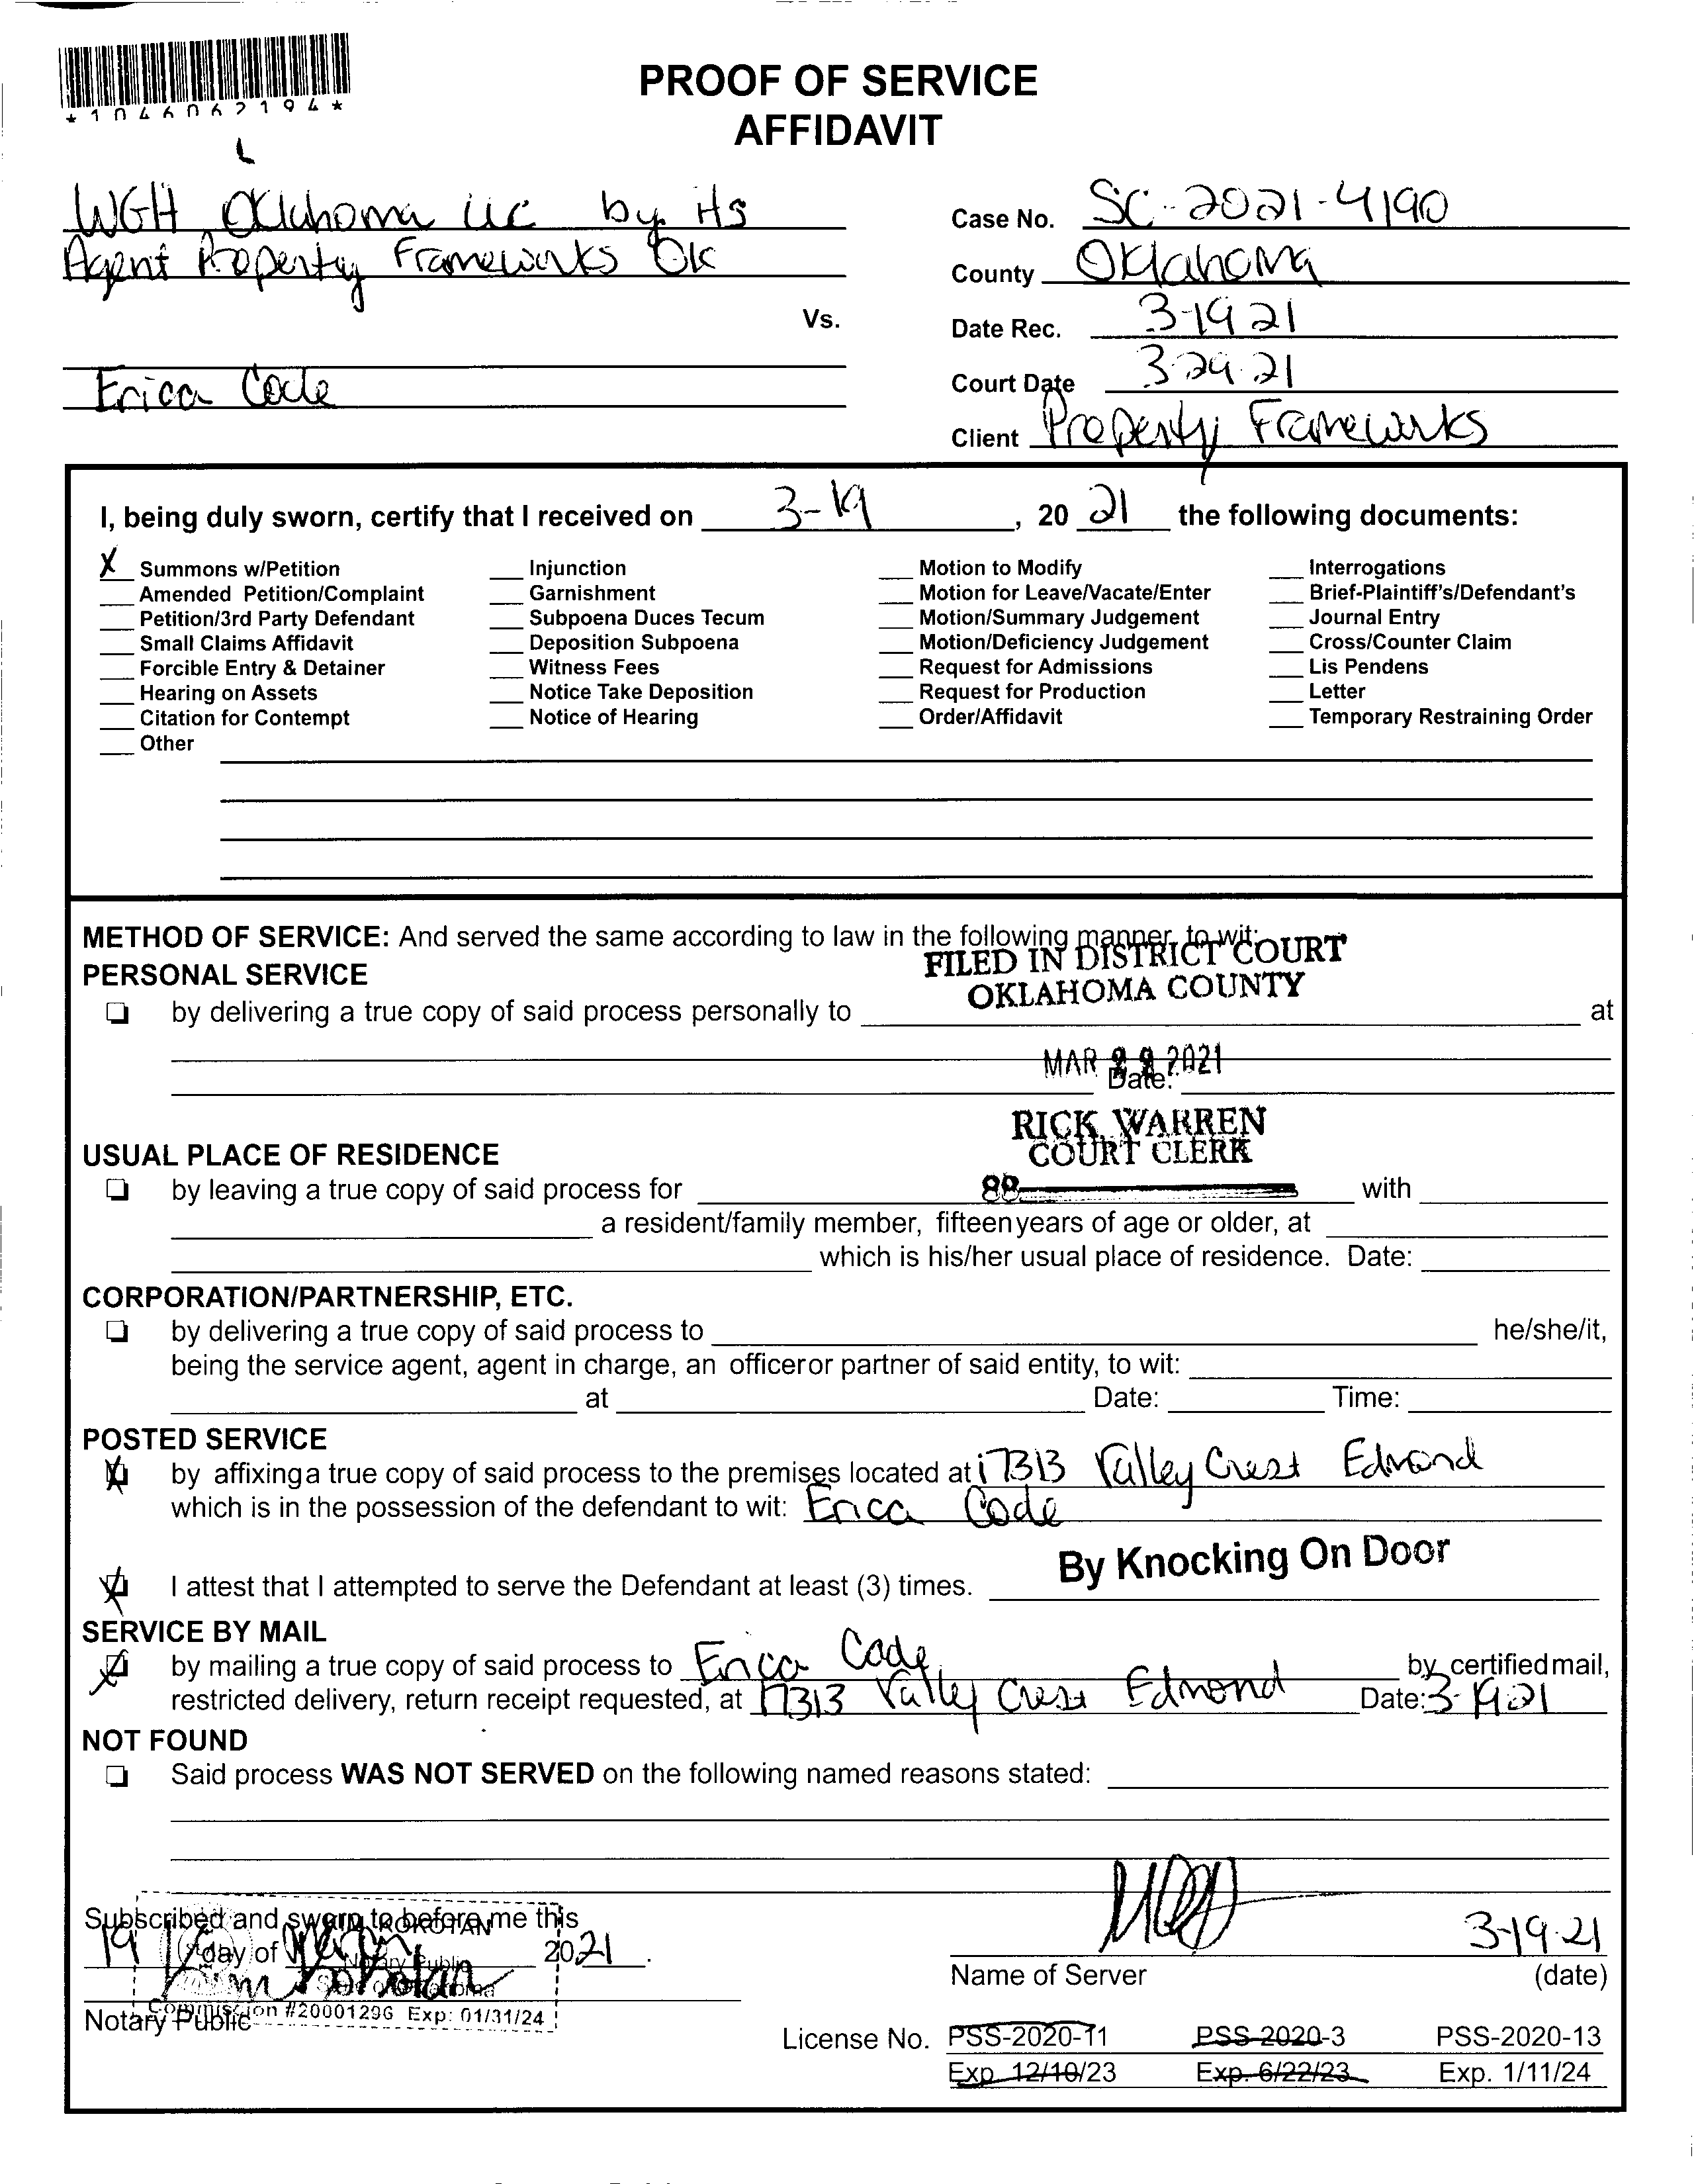 *1046062194*
PROOF OF SERVICE
AFFIDAVIT
WGH Oklahoma LLC by its
Agent Property Frameworks OK
Vs.
Erica Code
Case No. SC-2021-4190
County Oklahoma
Date Rec. 3-19 21
Court Date 3-29-21
Client Property Frameworks
I, being duly sworn, certify that I received on 3-19, 20 21 the following documents:
X Summons w/Petition
Amended Petition/Complaint
Petition/3rd Party Defendant
Small Claims Affidavit
Forcible Entry & Detainer
Hearing on Assets
Citation for Contempt
Other
Injunction
Garnishment
Subpoena Duces Tecum
Deposition Subpoena
Witness Fees
Notice Take Deposition
Notice of Hearing
Motion to Modify
Motion for Leave/Vacate/Enter
Motion/Summary Judgement
Motion/Deficiency Judgement
Request for Admissions
Request for Production
Order/Affidavit
Interrogations
Brief-Plaintiff's/Defendant's
Journal Entry
Cross/Counter Claim
Lis Pendens
Letter
Temporary Restraining Order
METHOD OF SERVICE: And served the same according to law in the following manner, to wit:
FILED IN DISTRICT COURT
OKLAHOMA COUNTY
PERSONAL SERVICE
by delivering a true copy of said process personally to at
MAR 2021
Date:
RICK WARREN
COURT CLERK
USUAL PLACE OF RESIDENCE
by leaving a true copy of said process for 88 with
a resident/family member, fifteen years of age or older, at
which is his/her usual place of residence. Date:
CORPORATION/PARTNERSHIP, ETC.
by delivering a true copy of said process to he/she/it,
being the service agent, agent in charge, an officer or partner of said entity, to wit:
at Date: Time:
POSTED SERVICE
X by affixing a true copy of said process to the premises located at 17313 Valley Crest Edmond
which is in the possession of the defendant to wit: Erica Code
By Knocking On Door
X I attest that I attempted to serve the Defendant at least (3) times.
SERVICE BY MAIL
X by mailing a true copy of said process to Erica Code by certified mail,
restricted delivery, return receipt requested, at 17313 Valley Crest Edmond Date: 3-19-21
NOT FOUND
Said process WAS NOT SERVED on the following named reasons stated:
Subscribed and sworn to before me this
19 day of March 2021.
Kim Kokotan
Notary Public
KIM KOKOTAN
Notary Public
State of Oklahoma
Commission #20001296 Exp: 01/31/24
3-19-21
Name of Server (date)
License No. PSS-2020-11 PSS-2020-3 PSS-2020-13
Exp. 12/10/23 Exp. 6/22/23 Exp. 1/11/24